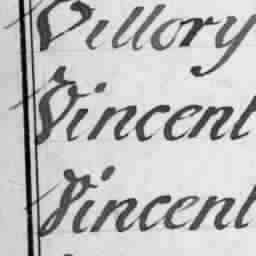 Villory
Vincent
Vincent